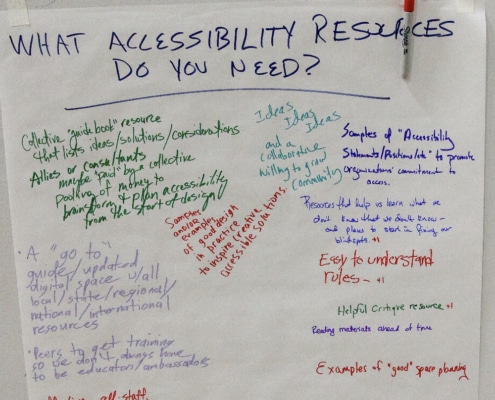 WHAT ACCESSIBILITY RESOURCES
DO YOU NEED?
Collective "guide book" resource
that lists ideas/solutions/considerations
Allies or consultants
maybe "paid" by a collective
pooling of money to
brainstorm & plan accessibility
from the start of design
Ideas
Ideas
Ideas
and a
collaborative
willing to grow
community
Samples of "Accessibility
Statements/Positions/etc" to promote
organizations' commitment to
access.
Samples
and/or
examples
of good design
in practice
to inspire creative
accessible solutions.
Resources that help us learn what we
don't know what we don't know -
and places to start in fixing our
blindspots +1
Easy to understand
rules - +1
Helpful Critique resource +1
Reading materials ahead of time
Examples of "good" space planning
• A "go to"
guide/updated
digital space w/all
local/state/regional/
national/international
resources
• Peers to get training
so we don't always have
to be educators/ambassadors
all-staff